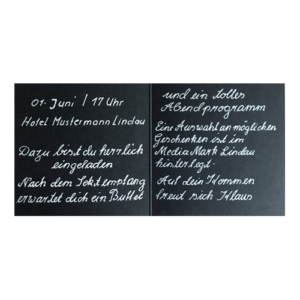 01. Juni / 17 Uhr
Hotel Mustermann Lindau
Dazu bist du herrlich
eingeladen
Nach dem Sektempfang
erwartet dich ein Buffet
und ein tolles
Abendprogramm
Eine Auswahl an möglichen
Geschenken ist im
Media Markt Lindau
hinterlegt.
Auf dein Kommen
freut sich Klaus